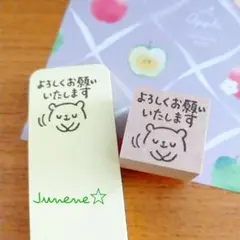 よろしくお願い
いたします
よろしくお願い
いたします
Junene☆